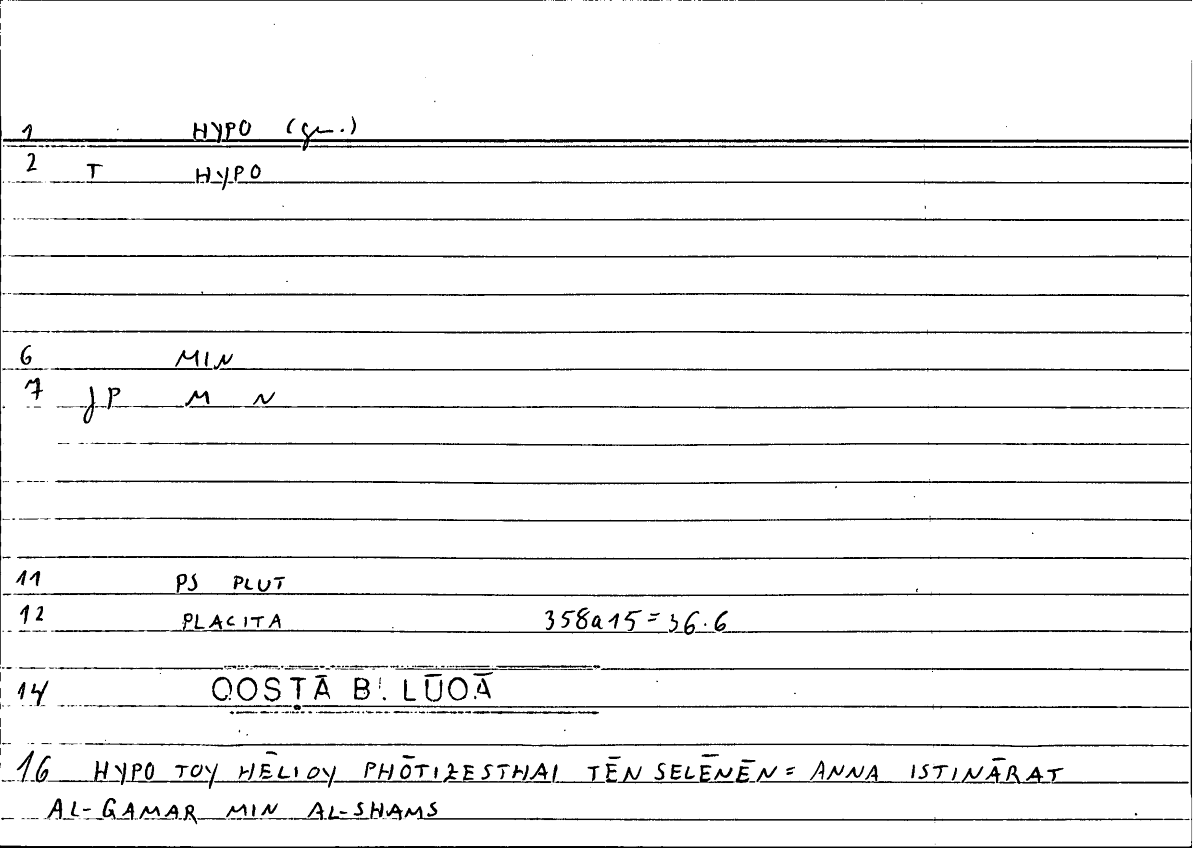 1 HYPO (gen.)
2 T HYPO
6 MIN
7 JP M N
11 PS PLUT
12 PLACITA 358a15=36.6
14 QOSṬĀ B. LŪQĀ
16 HYPO TOY HĒLIOY PHŌTIZESTHAI TĒN SELĒNĒN = ANNA ISTINĀRAT
AL-QAMAR MIN AL-SHAMS